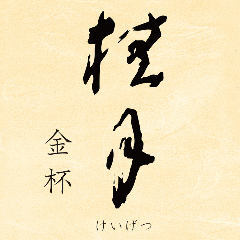 桂月
金杯
けいげつ